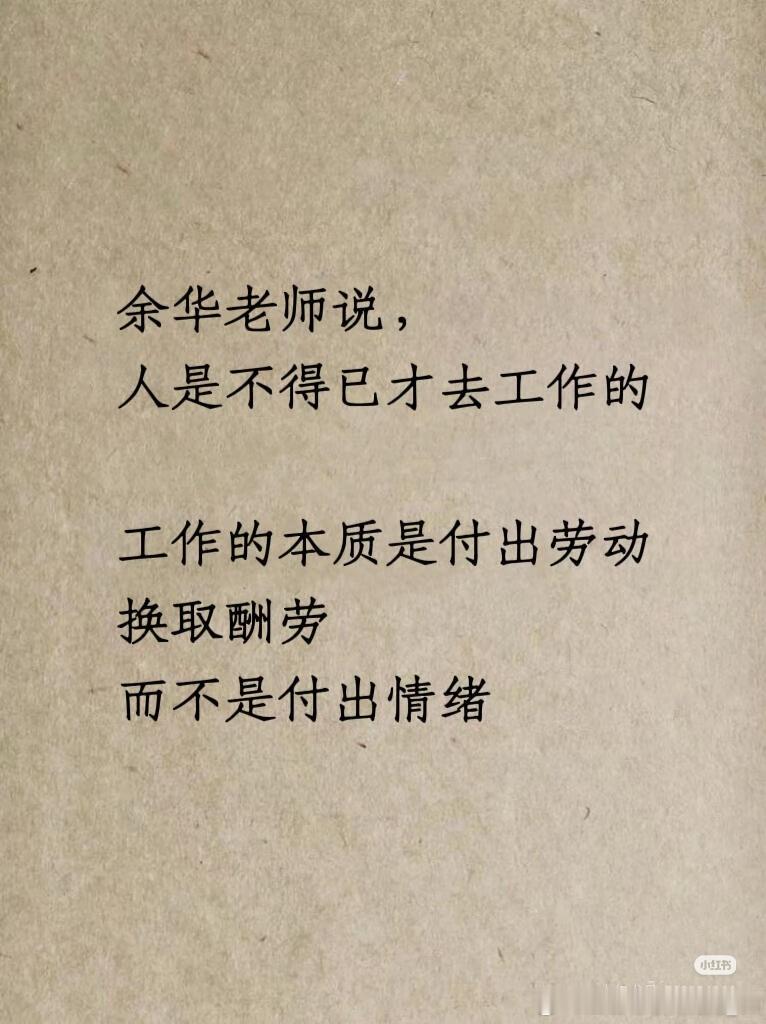 余华老师说，
人是不得已才去工作的
工作的本质是付出劳动
换取酬劳
而不是付出情绪
小红书